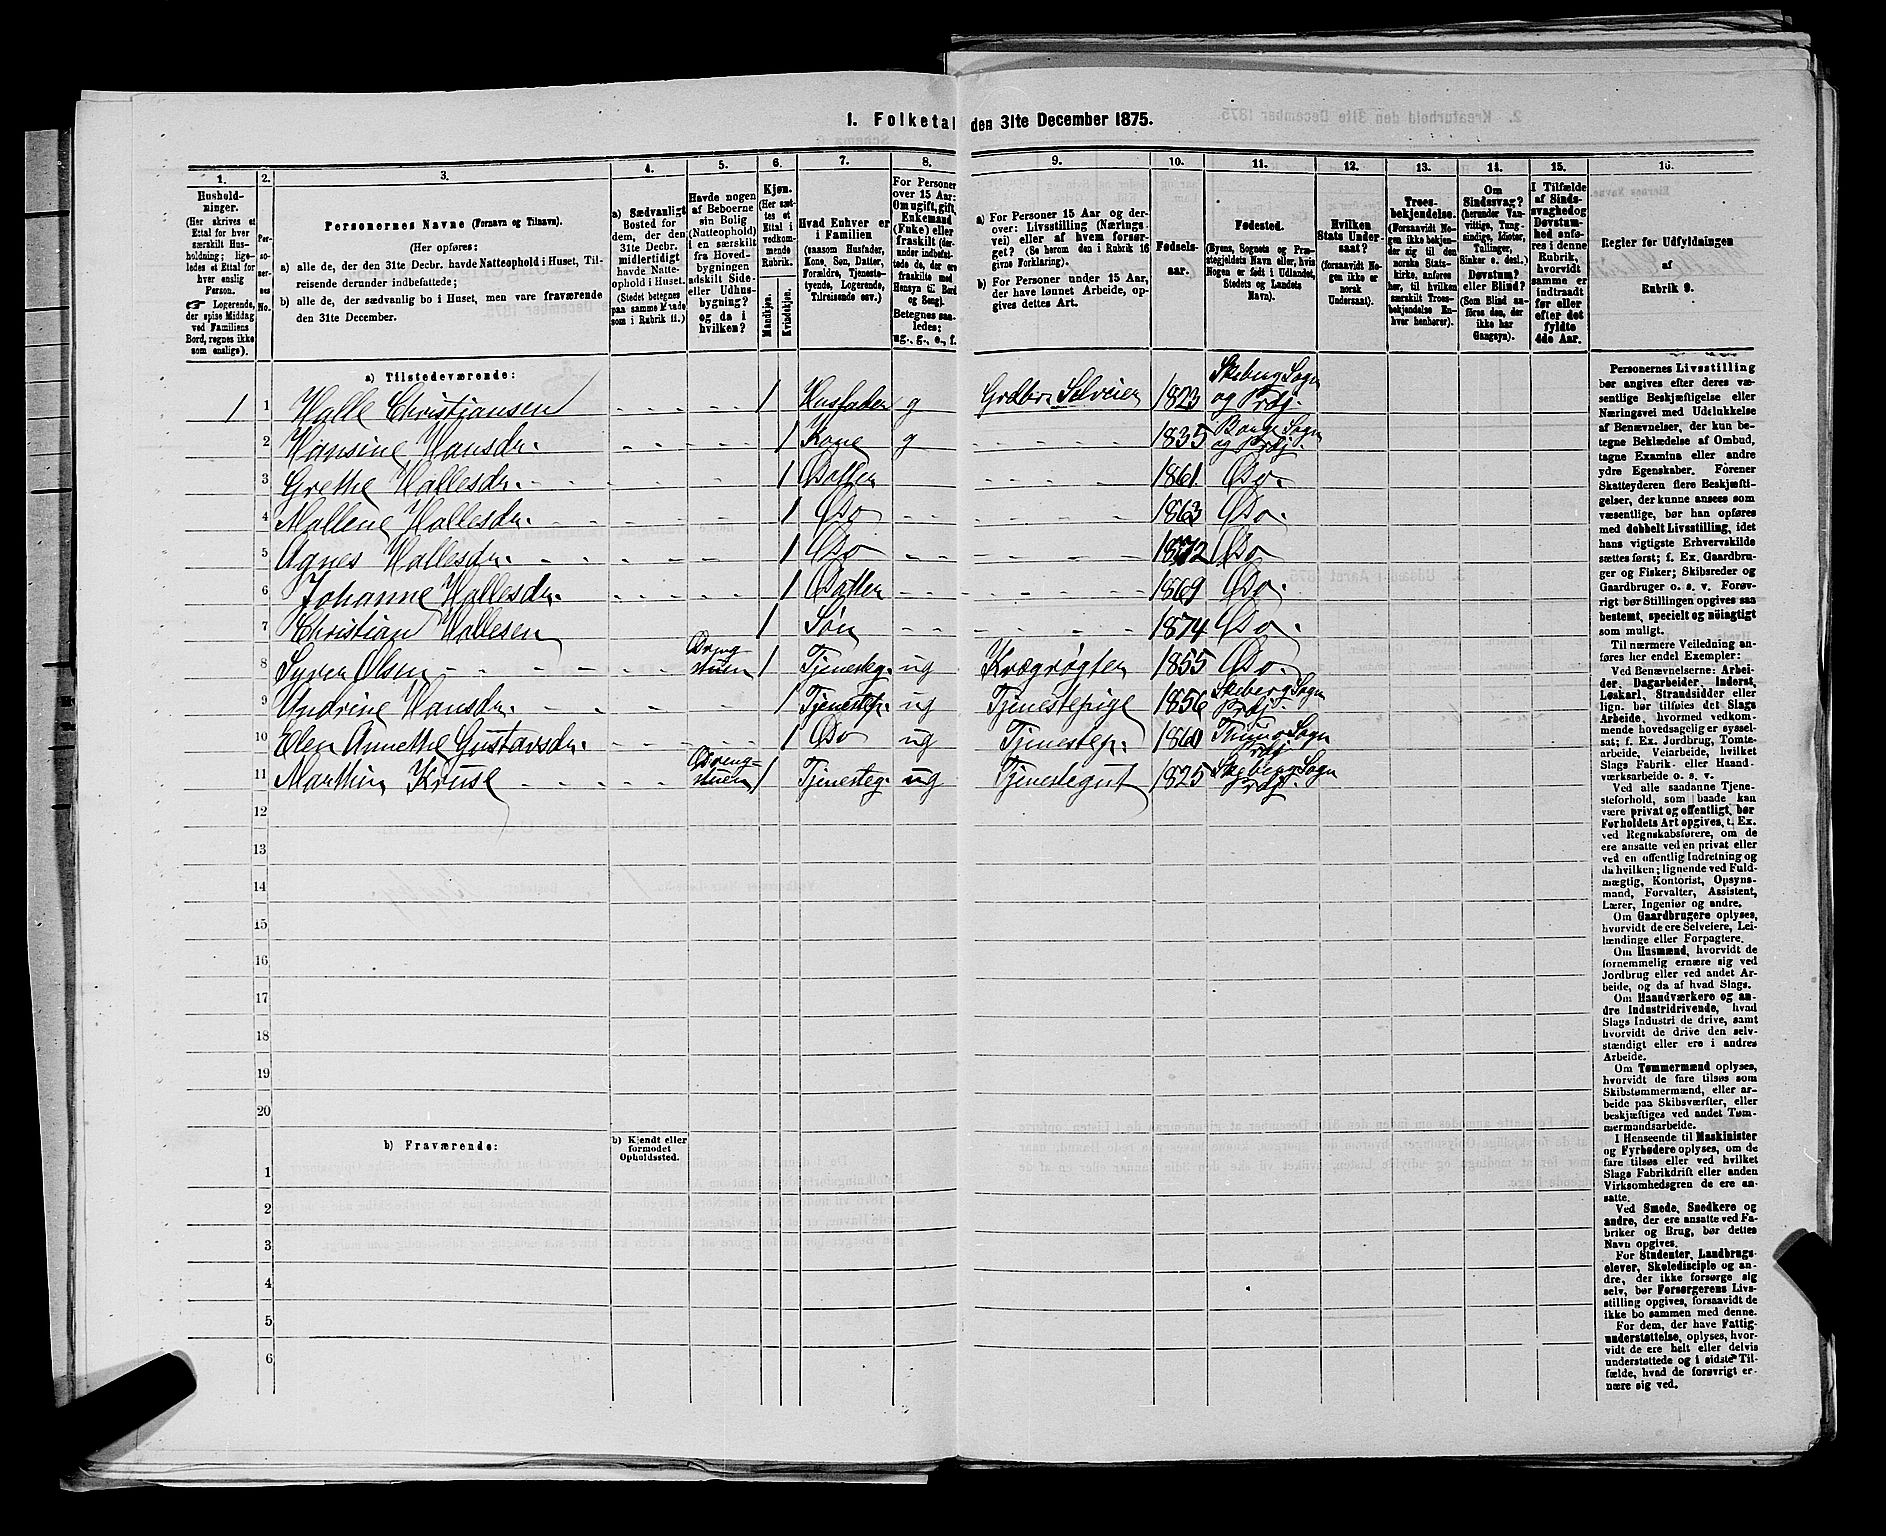 1. Folketal den 31te December 1875.
1. 2. 3. 4. 5. 6. 7. 8. 9. 10. 11. 12. 13. 14. 15. 16.
Hushold-
ninger.
(Her skrives et
Ettal for hver
særskilt Hus-
holdning; lige-
ledes et Ettal for
hver enslig
Person.
☞ Logerende,
der spise Middag
ved Familiens
Bord, regnes ikke
som enslige).
Per-
so-
ner-
nes
No.
Personernes Navne (Fornavn og Tilnavn).
(Her opføres:
a) alle de, der den 31te Decbr. havde Natteophold i Huset, Til-
reisende derunder indbefattede;
b) alle de, der sædvanlig bo i Huset, men vare fraværende
den 31te December.
a) Sædvanligt
Bosted for
dem, der den
31te Decbr.
midlertidigt
havde Natte-
ophold i Huset.
(Stedet betegnes
paa samme Maade
som i Rubrik 11.)
Havde nogen
af Beboerne
sin Bolig
(Natteophold)
i en særskilt
fra Hoved-
bygningen
adskilt Side-
eller Udhus-
bygning?
og da i
hvilken?
Kjøn.
(Her sæt-
tes et
Ettal i
vedkom-
mende
Rubrik.
Mandkjøn.
Kvindekjøn.
Hvad Enhver er
i Familien
(saasom Husfader,
Kone, Søn, Datter,
Forældre, Tjeneste-
tyende, Logerende,
Tilreisende osv.)
For Personer
over 15 Aar:
Om ugift, gift,
Enkemand
(Enke) eller
fraskilt (der-
under indbefat-
tede de, der ere
fraskilte med
Hensyn til Bord
og Seng).
Betegnes saa-
ledes:
ug., g., e., f.
a) For Personer 15 Aar og der-
over: Livsstilling (Nærings-
vei) eller af hvem forsør-
get? (Se herom den i Rubrik 16
givne Forklaring).
b) For Personer under 15 Aar,
der have lønnet Arbeide, op-
gives dettes Art.
Fødsels-
aar.
Fødested.
(Byens, Sognets og Præ-
stegjeldets Navn eller, hvis
Nogen er født i Udlandet,
Stedets og Landets
Navn).
Hvilken
Stats Under-
saat?
(forsaavidt No-
gen ikke er
norsk
Undersaat).
Troes-
bekjendelse.
(Forsaavidt No-
gen ikke bekjen-
der sig til den
norske Stats-
kirke, anføres
her, til hvilken
særskilt Troes-
bekjendelse En-
hver henhører).
Om
Sindssvag?
(herunder Van-
vittige, Tung-
sindige, Idioter,
Tullinger,
Sinker o. desl.)
Døvstum?
eller Blind?
(Som Blind an-
føres den, der
ikke har
Gangsyn).
I Tilfælde
af Sinds-
svaghed og
Døvstum-
hed anfø-
res i denne
Rubrik,
hvorvidt
samme er
indtraadt
før eller
efter det
fyldte
4de Aar.
Regler for Udfyldningen
af
Rubrik 9.
a) Tilstedeværende:
1 1 Halle Christiansen 1 Husfader g Grdbr. Selveier 1823 Skeberg Sogn og Prdj.
2 Hansine Hansdr. 1 Kone g 1835 Borge Sogn og Prdj.
3 Grethe Hallesdr. 1 Datter 1861 Do.
4 Mallene Hallesdr. 1 Do 1863 Do.
5 Agnes Hallesdr. 1 Do 1872 Do
6 Johanne Hallesdr. 1 Datter 1869 Do.
7 Christian Hallesen 1 Søn 1874 Do.
8 Syver Olsen Dreng stuen 1 Tjenesteg. ug Kregrøgter 1855 Do.
9 Andrine Hansdr. 1 Tjenestep. ug Tjenestepige 1856 Skeberg Sogn Prdj.
10 Elen Annethe Gustavsdr. 1 Do ug Tjenestep. 1860 Thunø Sogn Prdj.
11 Marthin Kruse Dreng- stuen 1 Tjenesteg. ug Tjenestegut 1825 Skeberg Sogn Prdj.
12
13
14
15
16
17
18
19
20
b) Fraværende:
b) Kjendt eller
formodet
Opholdssted.
1
2
3
4
5
6
Personernes Livsstilling
bør angives efter deres væ-
sentlige Beskjæftigelse eller
Næringsvei med Udelukkelse
af Benævnelser, der kun be-
tegne Beklædelse af Ombud,
tagne Examina eller andre
ydre Egenskaber. Forener
Skatteyderen flere Beskjæfti-
gelser, der kunne ansees som
væsentlige, bør han opføres
med dobbelt Livsstilling, idet
hans vigtigste Erhvervskilde
sættes først; f. Ex. Gaardbru-
ger og Fisker; Skibsreder og
Gaardbruger o. s. v. Forøv-
rigt bør Stillingen opgives saa
bestemt, specielt og nøiagtigt
som muligt.
Til nærmere Veiledning an-
føres her endel Exempler:
Ved Benævnelserne: Arbei-
der, Dagarbeider, Inderst,
Løskarl, Strandsidder eller
lign. bør tilføies det Slags
Arbeide, hvormed vedkom-
mende hovedsagelig er syssel-
sat; f. Ex. Jordbrug, Tomte-
arbeide, Veiarbeide, hvilket
Slags Fabrik- eller Haand-
værksarbeide o. s. v.
Ved alle saadanne Tjene-
steforhold, som baade kan
være privat og offentligt, bør
Forholdets Art opgives, t. Ex.
ved Regnskabsførere, om de
ere ansatte ved en privat eller
ved en offentlig Indretning og
da hvilken; lignende ved Fuld-
mægtig, Kontorist, Opsyns-
mand, Forvalter, Assistent,
Lærer, Ingeniør og andre.
Om Gaardbrugere oplyses,
hvorvidt de ere Selveiere, Lei-
lændinge eller Forpagtere.
Om Husmænd, hvorvidt de
fornemmelig ernære sig ved
Jordbrug eller ved andet Ar-
beide, og da af hvad Slags.
Om Haandværkere og an-
dre Industridrivende, hvad
Slags Industri de drive, samt
hvorvidt de drive den selv-
stændigt eller ere i andres
Arbeide.
Om Tømmermænd oplyses,
hvorvidt de fare tilsøs som
Skibstømmermænd, eller ar-
beide paa Skibsværfter, eller
beskjæftiges ved andet Tøm-
mermandsarbeide.
I Henseende til Maskinister
og Fyrbødere oplyses, om de
fare tilsøs eller ved hvilket
Slags Fabrikdrift eller anden
Virksomhedsgren de ere an-
satte.
Ved Smede, Snedkere og
andre, der ere ansatte ved Fa-
briker og Brug, bør dettes
Navn opgives.
For Studenter, Landbrugs-
elever, Skoledisciple og an-
dre, der ikke forsørge sig
selv, bør Forsørgerens Livs-
stilling opgives, forsaavidt de
ikke bo sammen med denne.
For dem, der have Fattig-
understøttelse, oplyses, hvor-
vidt de ere helt eller delvis
understøttede og i sidste Til-
fælde, hvad de forøvrigt er-
nære sig ved.